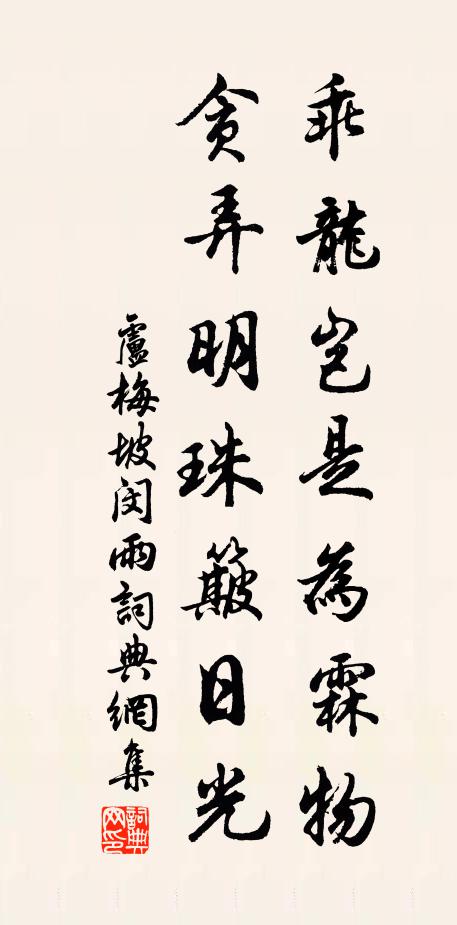 乖龍豈是為霖物
貪弄明珠簸日光
盧梅坡閔雨詞典網集
詞典
网印